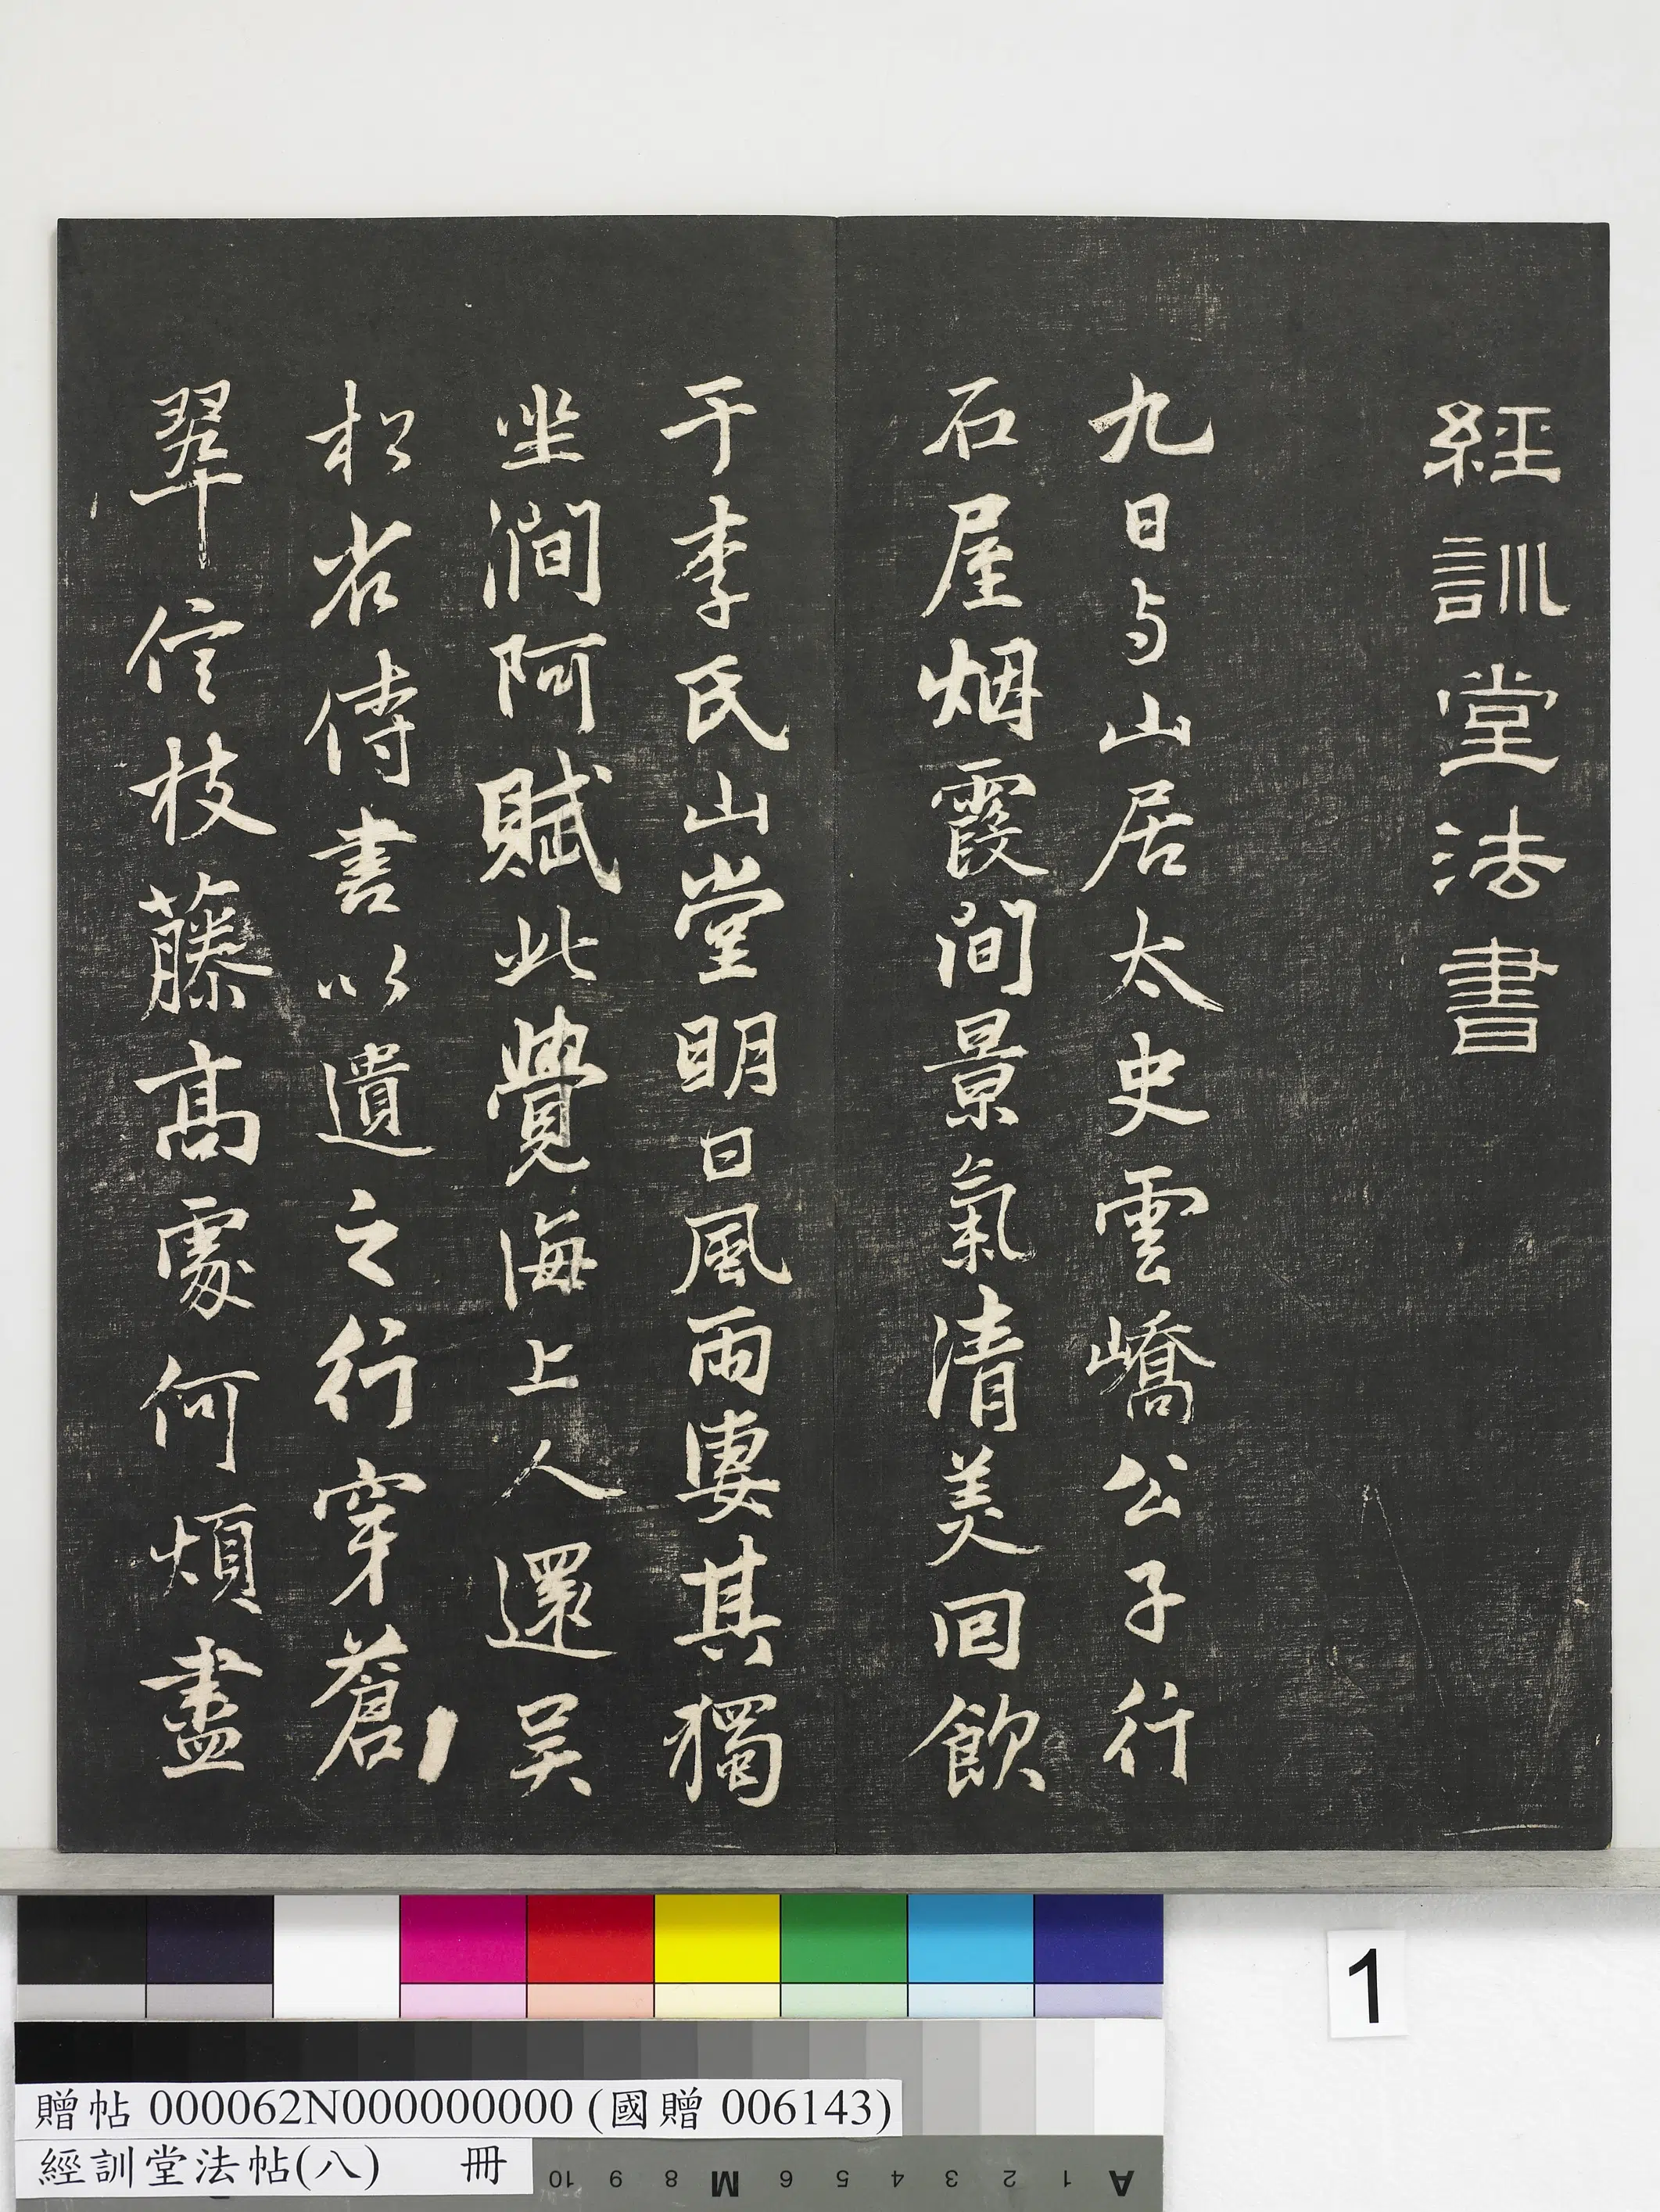 經訓堂法書
九日与山居太史雲嶠公子行
石屋烟霞間景氣清美回飲
于李氏山堂明日風雨凄其獨
坐澗阿賦此覺海上人還吳
松省侍書以遺之行穿蒼
翠信枝藤高處何煩盡
1
贈帖 000062N000000000 (國贈 006143)
經訓堂法帖(八) 冊
10 9 8 M 6 5 4 3 2 1 A